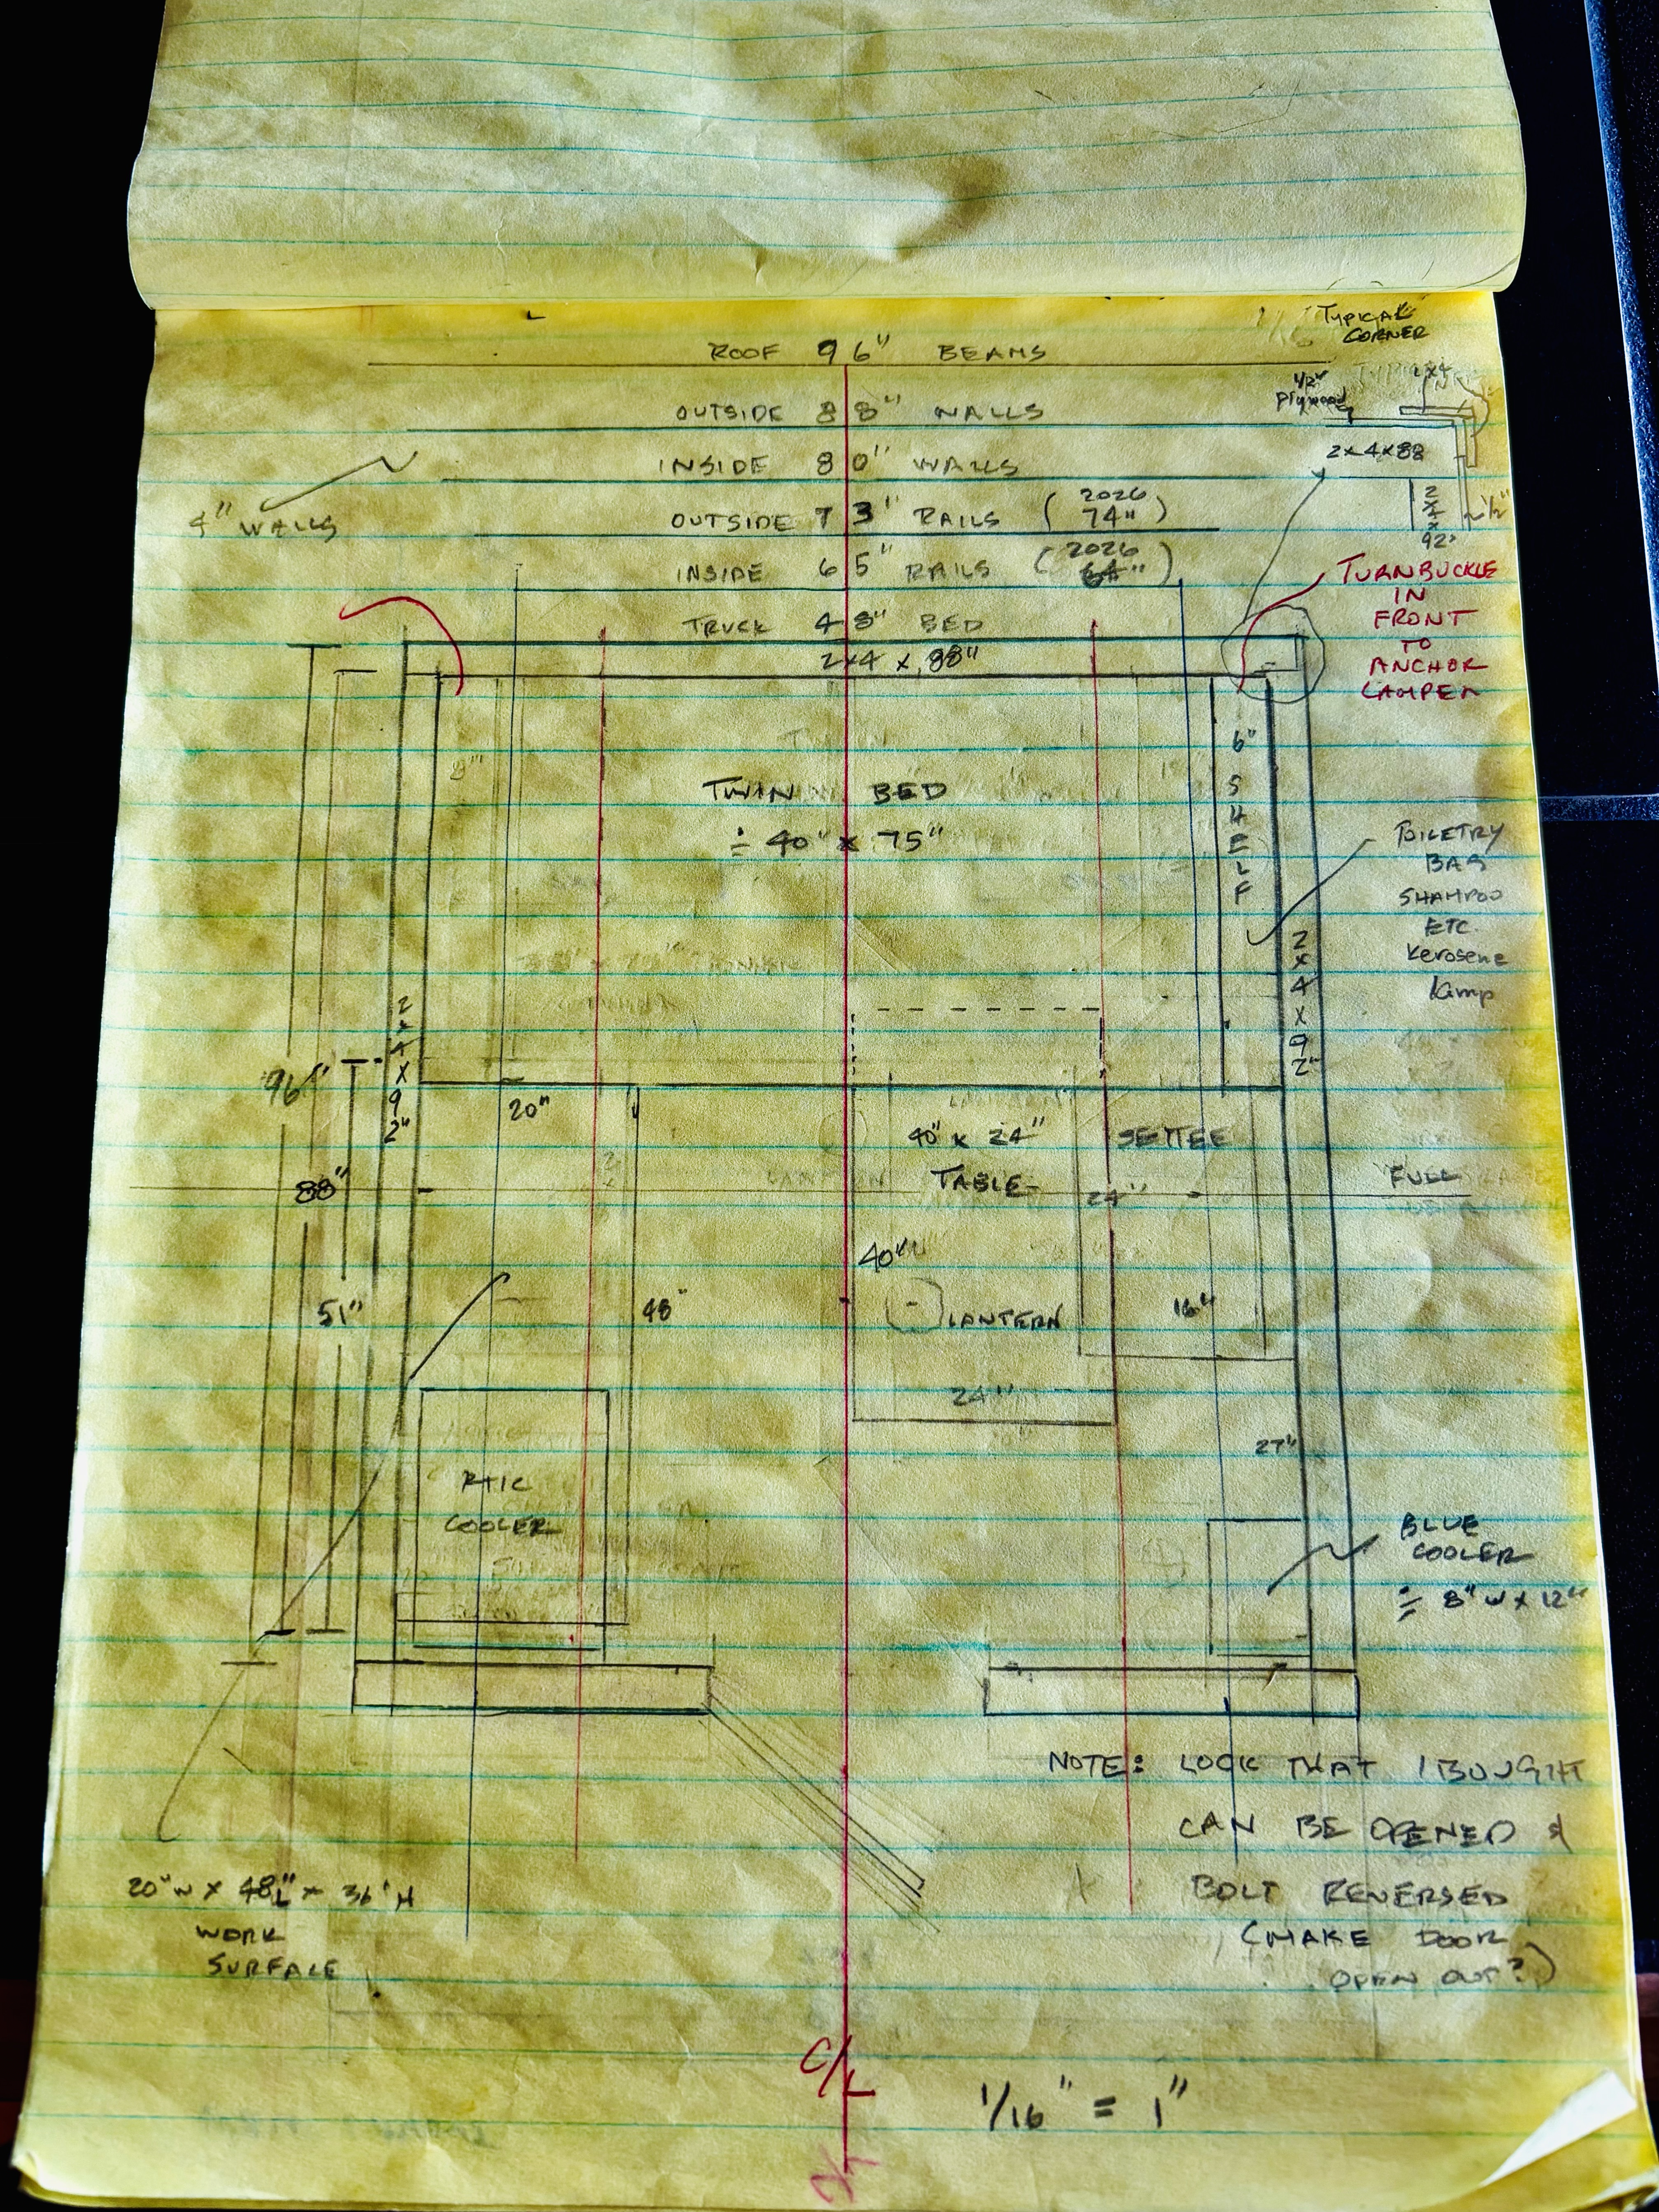 TYPICAL
CORNER
ROOF 96" BEAMS
1/2"
Plywood
2x4
OUTSIDE 88" WALLS
2x4x88
INSIDE 80" WALLS
4" WALLS
OUTSIDE 73" RAILS (2026 74")
2x4x92"
1/2"
INSIDE 65" RAILS (2026 64")
TRUCK 48" BED
2x4 x 88"
TURNBUCKLE
IN
FRONT
TO
ANCHOR
CAMPER
6" SHELF
TWIN BED
÷ 40" x 75"
TOILETRY
BAG
SHAMPOO
ETC.
Kerosene
Lamp
2x4x92"
2x4x92"
96"
20"
40" x 24"
TABLE
SETTEE
FULL
88"
24"
40"
51"
48"
LANTERN
16"
24"
27"
RTIC
COOLER
BLUE
COOLER
÷ 8" W x 12"
NOTE: LOCK THAT I BOUGHT
CAN BE OPENED &
BOLT REVERSED
(MAKE DOOR
OPEN OUT?)
20"W x 48"L x 36"H
WORK
SURFACE
C/L
1/16" = 1"